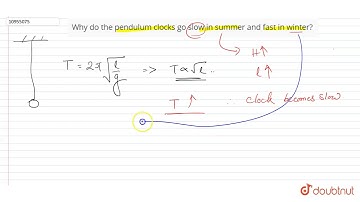 10955075
Why do the pendulum clocks go slow in summer and fast in winter?
T = 2π√(l/g) => T∝√l..
H↑
l↑
T ↑ ∴ clock becomes slow
doubtnut